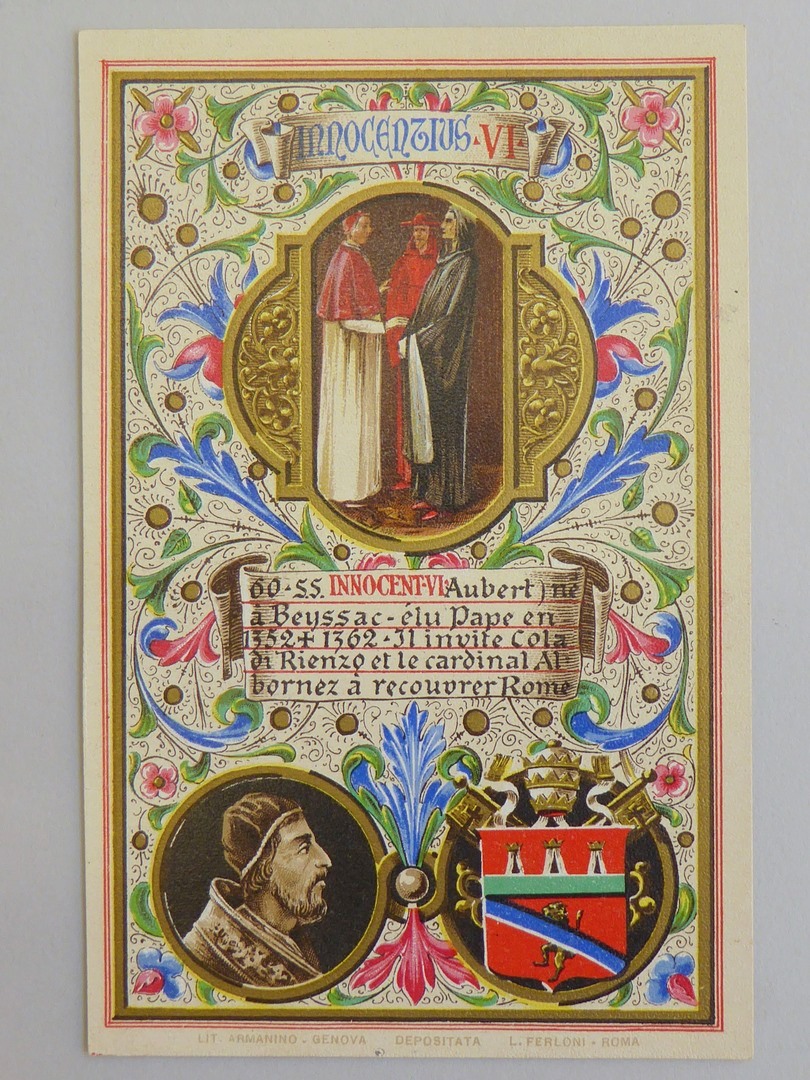 INNOCENTIUS·VI·
60-SS INNOCENT·VI(Aubert) né
à Beyssac-élu Pape en
1352✝1362-Il invite Cola
di Rienzo et le cardinal Al
bornez à recouvrer Rome
LIT. ARMANINO - GENOVA DEPOSITATA L. FERLONI - ROMA